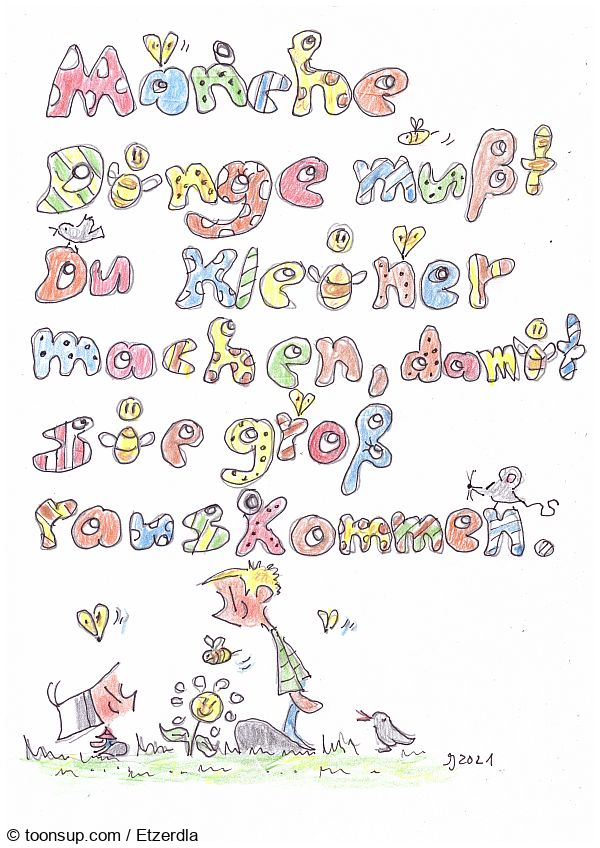 Manche
Dinge mußt
Du kleiner
machen, damit
sie groß
rauskommen.
2021
© toonsup.com / Etzerdla